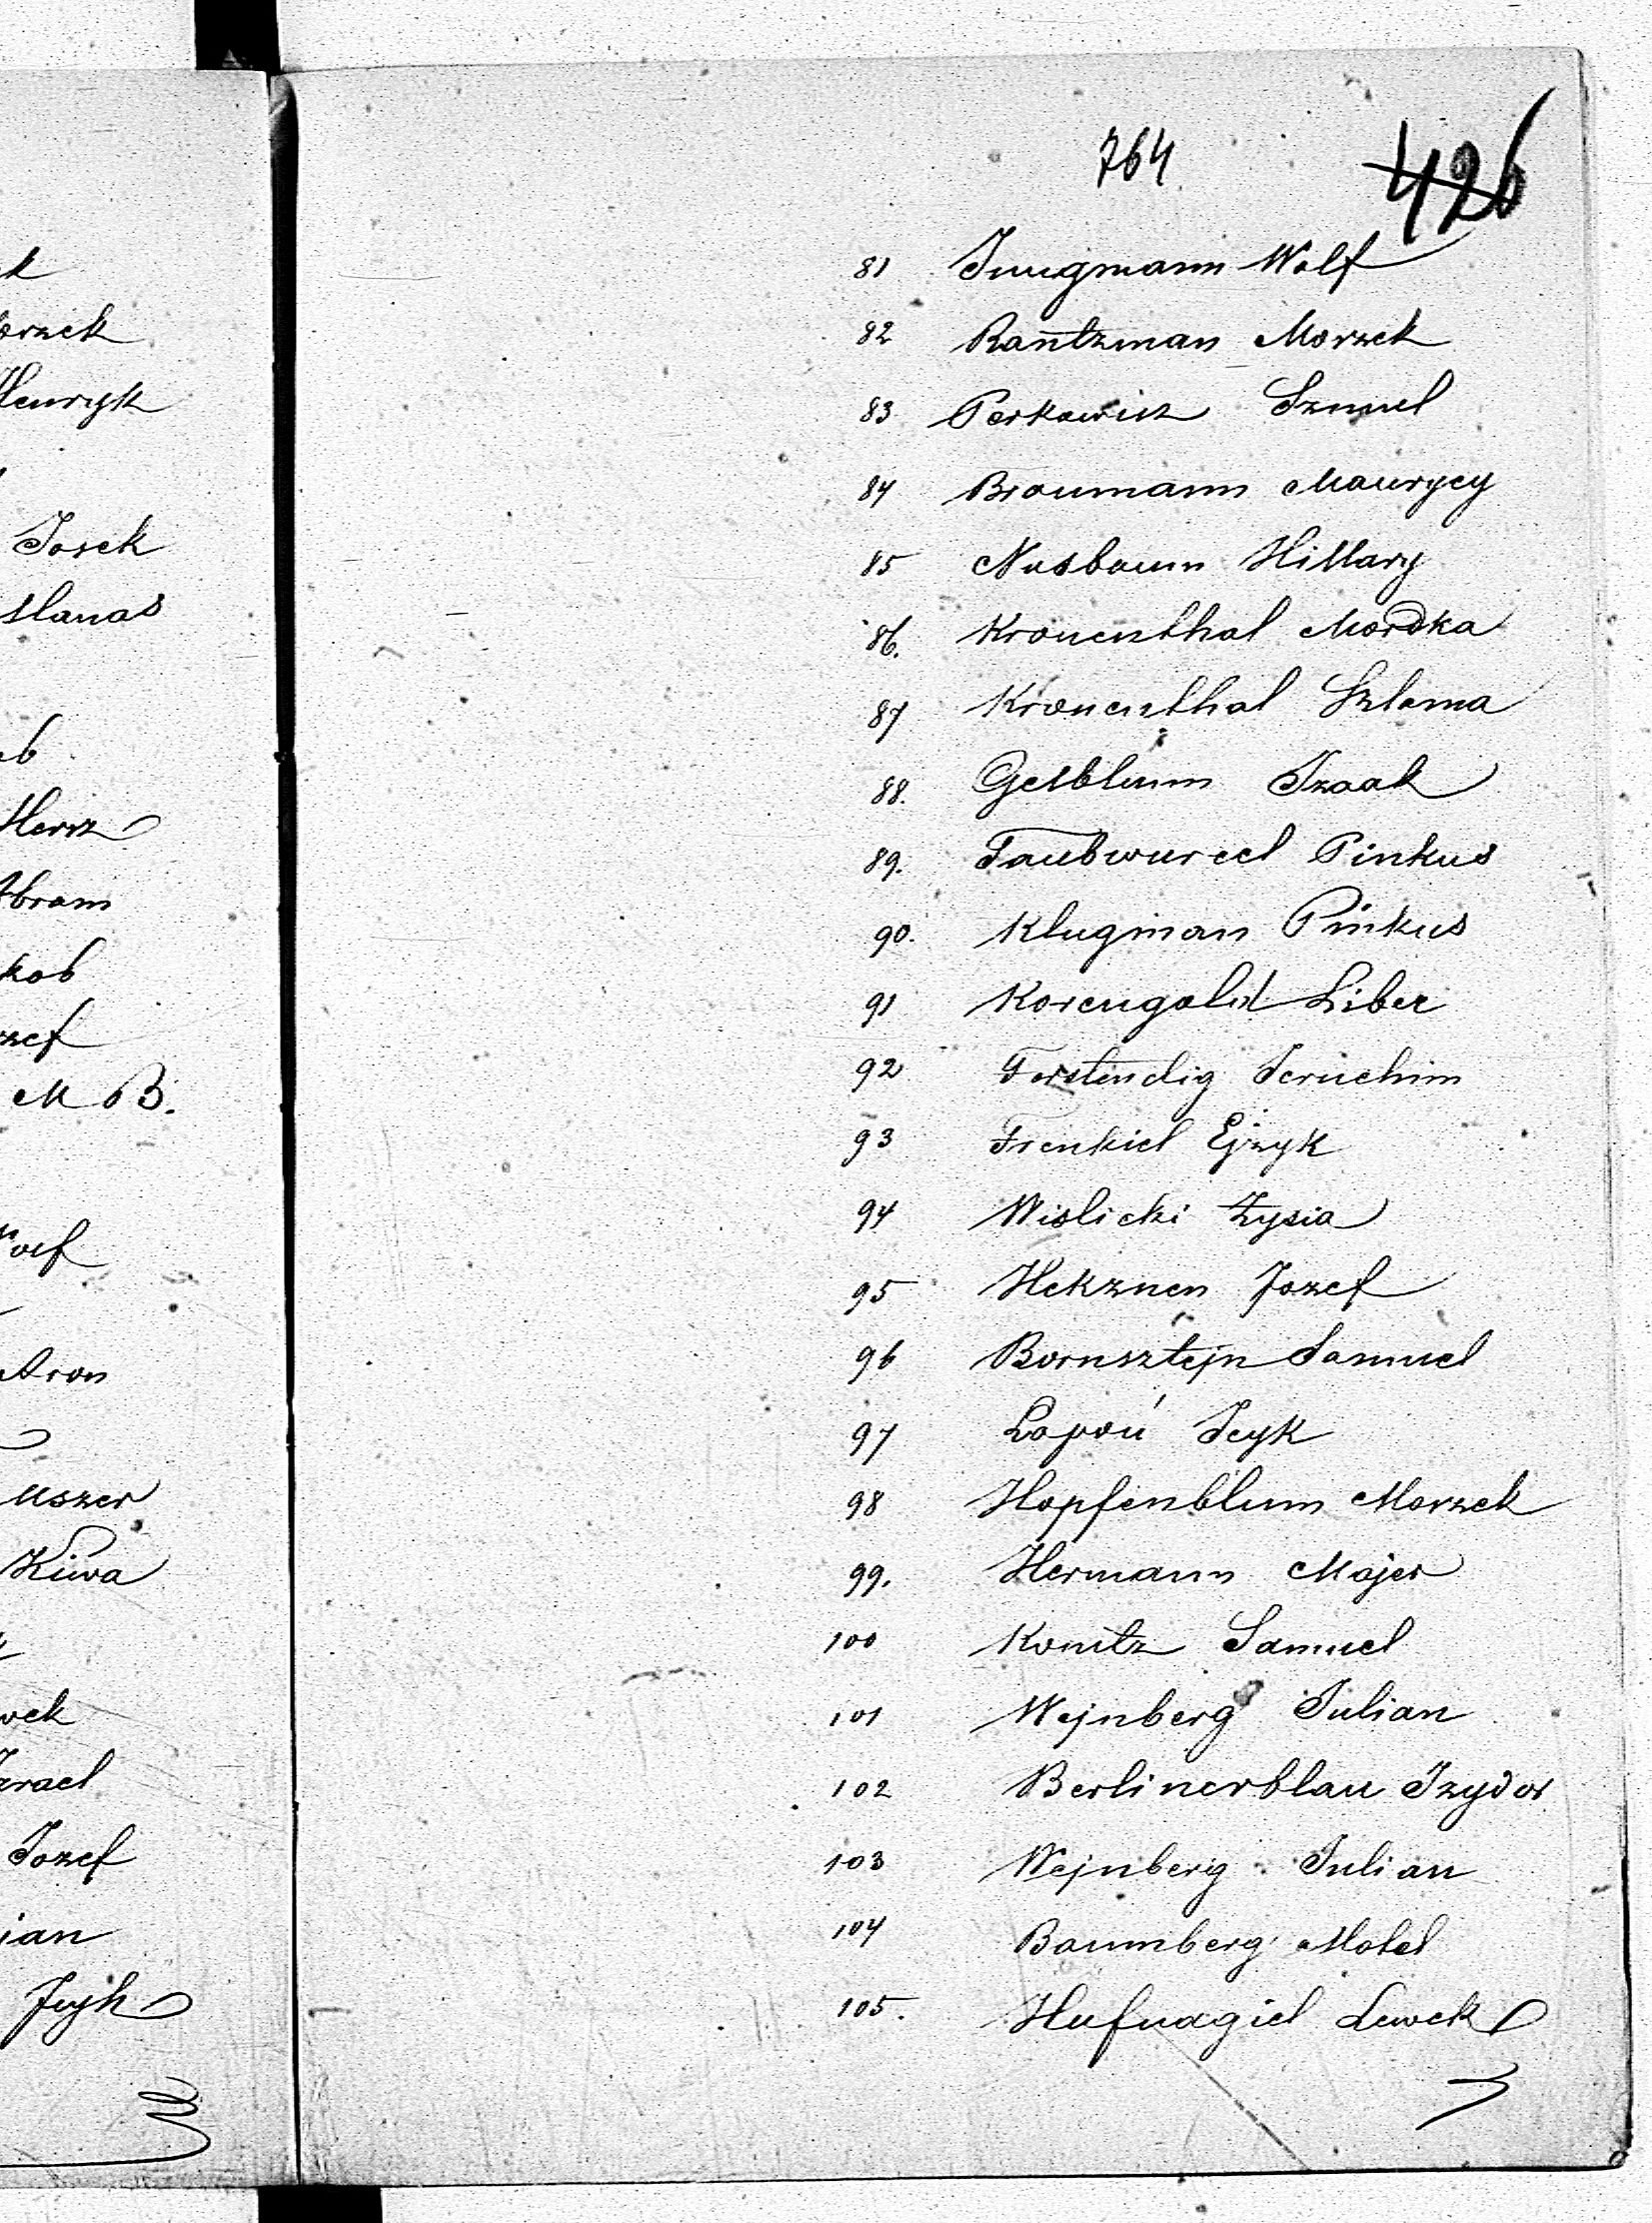 k
orzek
Henryk
Josek
Manas
ob
Hersz
Abram
kob
zef
M B.
Aron
Uszer
Kiwa
wek
Izrael
Jozef
ian
764
426
81 Jungmann Wolf
82 Rantzman Morzek
83 Perkowicz Szmul
84 Braumann Maurycy
85 Nusbaum Hillary
86. Kronenthal Mordka
87 Kronenthal Szlama
88. Gelblum Izaak
89. Taubwurcel Pinkus
90. Klugman Pinkus
91 Korengold Liber
92 Forstendig Jeruchim
93 Frenkiel Ejzyk
94 Wislicki Zysia
95 Hekznen Jozef
96 Bornsztejn Samuel
97 Icyk
98 Hopfenblum Morzek
99. Hermann Majer
100 Konitz Samuel
101 Wejnberg Julian
102 Berlinerblau Izydor
103 Wejnberg Julian
104 Baumberg Motel
105. Hufnagiel Lewek